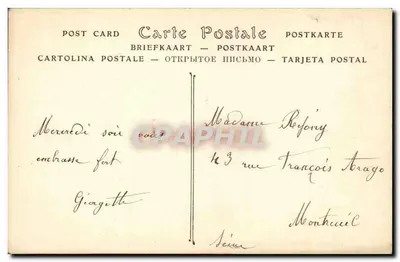 POST CARD Carte Postale POSTKARTE
BRIEFKAART — POSTKAART
CARTOLINA POSTALE — ОТКРЫТОЕ ПИСЬМО — TARJETA POSTAL
Mercredi soir vous
embrasse fort
Georgette
Madame Refóny
43 rue François Arago
Montreuil
Seine
CPAPHIL